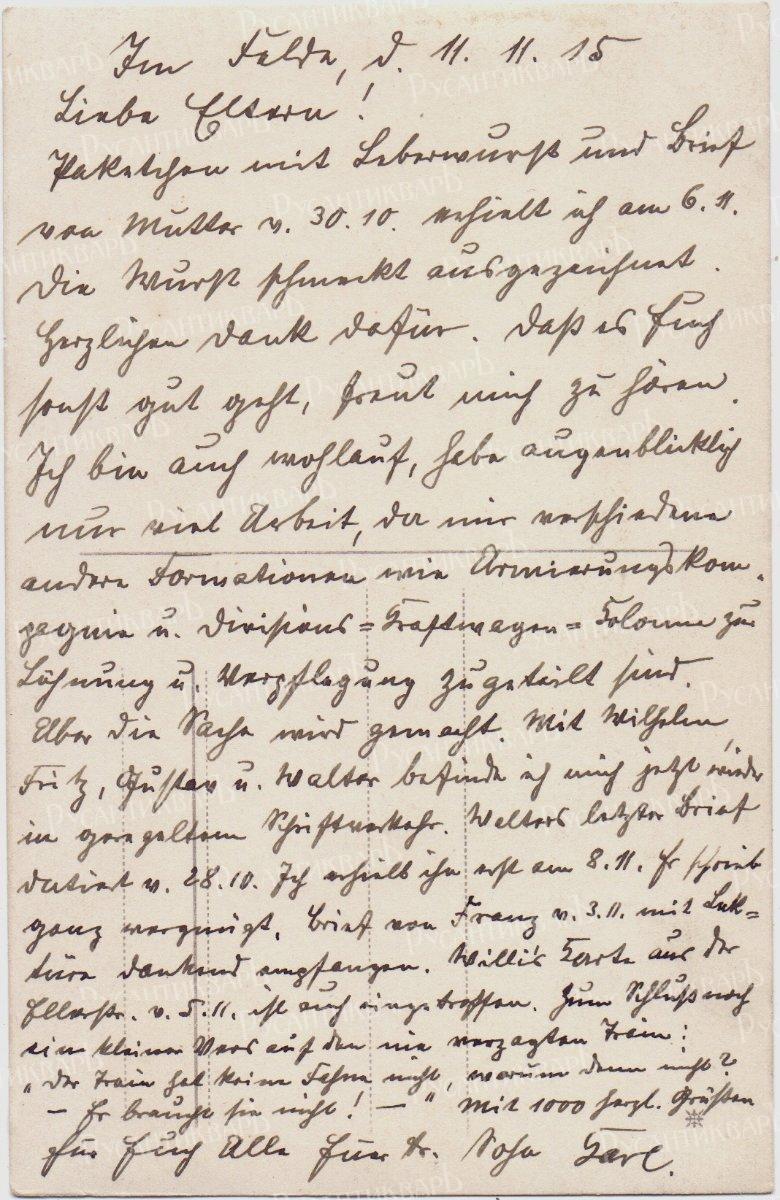 Im Felde, d. 11. 11. 15
Liebe Eltern!
Paketchen mit Leberwurst und Brief
von Mutter v. 30.10. erhielt ich am 6.11.
Die Wurst schmeckt ausgezeichnet.
Herzlichen Dank dafür. Daß es Euch
sonst gut geht, freut mich zu hören.
Ich bin auch wohlauf, habe augenblicklich
nur viel Arbeit, da mir verschiedene
andere Formationen wie Armierungskom-
pagnie u. Divisions=Kraftwagen=Kolonne zur
Löhnung u. Verpflegung zugeteilt sind.
Aber die Sache wird gemacht. Mit Wilhelm,
Fritz, Gustav u. Walter befinde ich mich jetzt wieder
in geregeltem Schriftverkehr. Walters letzter Brief
datiert v. 28.10. Ich erhielt ihn erst am 8.11. Er schrieb
ganz vergnügt. Brief von Franz v. 3.11. mit Lek=
türe dankend empfangen. Willi's Karte aus der
Ellerstr. v. 5.11. ist auch eingetroffen. Zum Schluß noch
ein kleiner Vers auf den nie verzagten Train:
"Der Train hat keine Fahne nicht, warum denn nicht?
— Er braucht sie nicht! —" Mit 1000 herzl. Grüßen
für Euch Alle Euer tr. Sohn Karl.